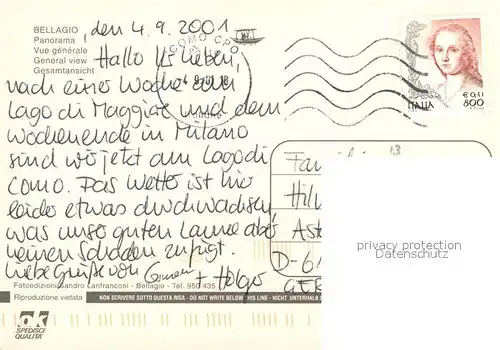 BELLAGIO
Panorama
Vue générale
General view
Gesamtansicht
den 4.9.2001
Hallo Ihr Lieben,
nach einer Woche am
Lago di Maggiore und dem
Wochenende in Milano
sind wir jetzt am Lago di
Como. Das Wetter ist hier
leider etwas durchwachsen,
was unsrer guten Laune aber
keinen Schaden zufügt.
Liebe Grüße von + Holger
COMO CPO
ITALIA
€ 0,41
800
13
Fa
Hil
Ast
D-6
GER
privacy protection
DAKSCHIC.COM
Fotoedizioni Sandro Lanfranconi - Bellagio - Tel. 950 435
Riproduzione vietata
NON SCRIVERE SOTTO QUESTA RIGA - DO NOT WRITE BELOW THIS LINE - NICHT UNTERHALB D
OK
SPEDISCI
QUALITA'